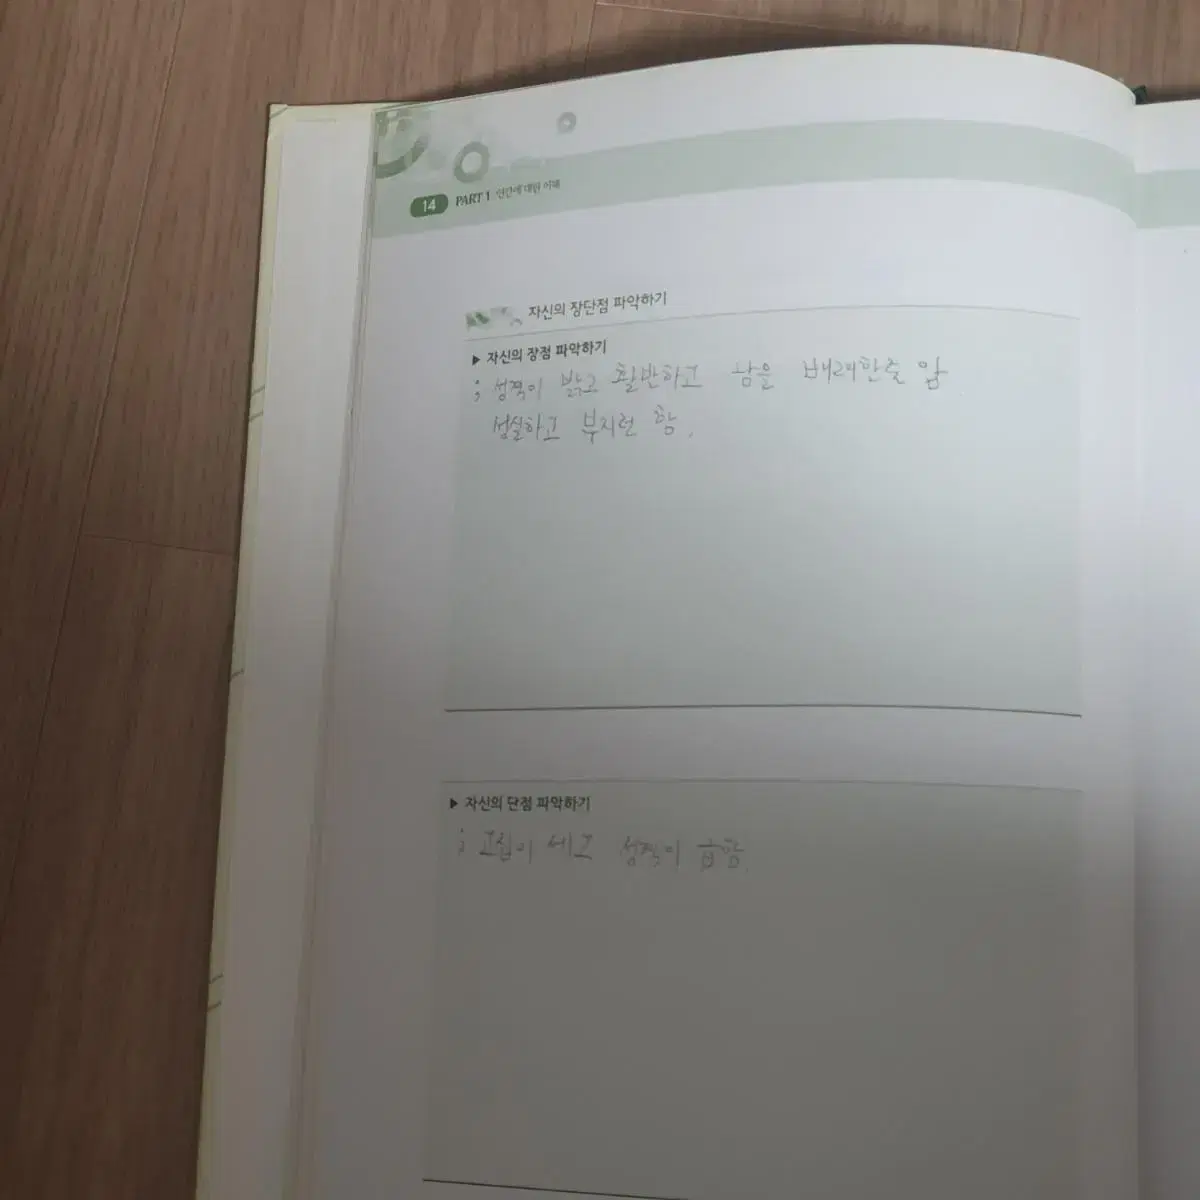 14 PART 1 인간에 대한 이해
자신의 장단점 파악하기
▶ 자신의 장점 파악하기
; 성격이 밝고 활반하고 남을 배려한줄 앎
성실하고 부지런 함.
▶ 자신의 단점 파악하기
; 고집이 세고 성격이 급함.